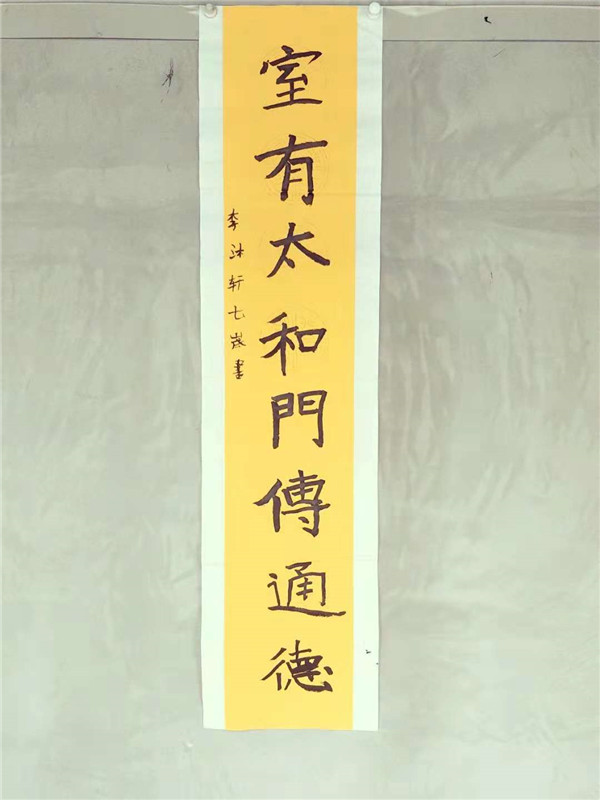 室有太和門傳通德
李沐轩七歲書